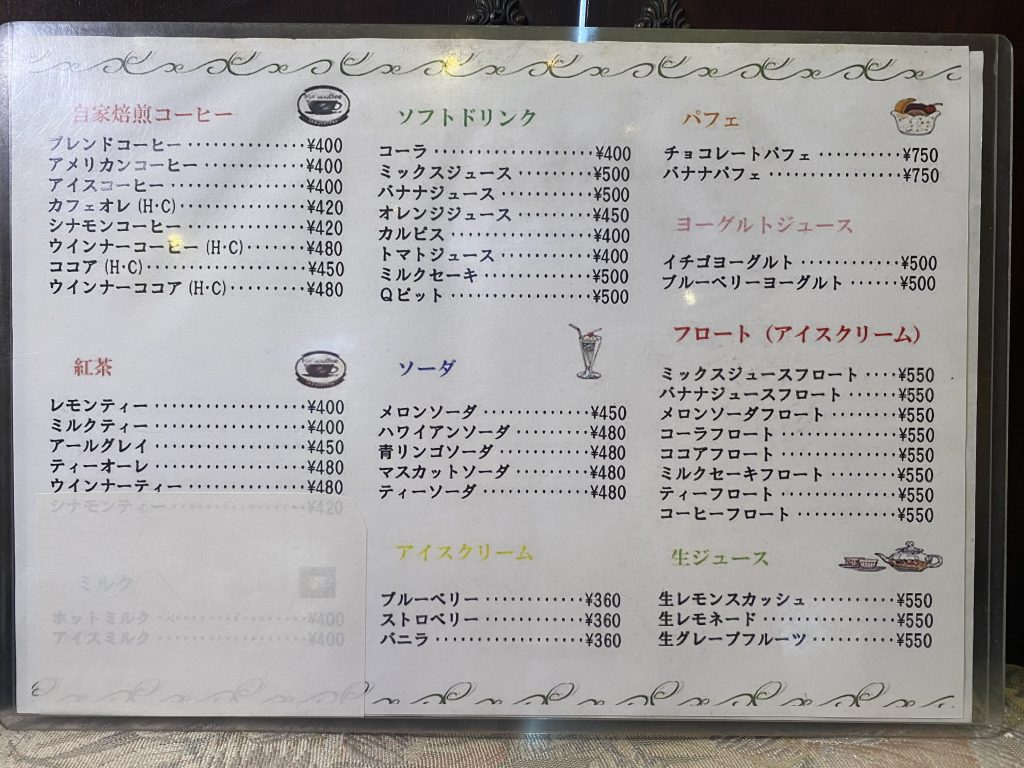 自家焙煎コーヒー
ブレンドコーヒー ¥400
アメリカンコーヒー ¥400
アイスコーヒー ¥400
カフェオレ (H・C) ¥420
シナモンコーヒー ¥420
ウインナーコーヒー (H・C) ¥480
ココア (H・C) ¥450
ウインナーココア (H・C) ¥480
紅茶
レモンティー ¥400
ミルクティー ¥400
アールグレイ ¥450
ティーオーレ ¥480
ウインナーティー ¥480
シナモンティー ¥420
ミルク
ホットミルク ¥400
アイスミルク ¥400
ソフトドリンク
コーラ ¥400
ミックスジュース ¥500
バナナジュース ¥500
オレンジジュース ¥450
カルピス ¥400
トマトジュース ¥400
ミルクセーキ ¥500
Qピット ¥500
ソーダ
メロンソーダ ¥450
ハワイアンソーダ ¥480
青リンゴソーダ ¥480
マスカットソーダ ¥480
ティーソーダ ¥480
アイスクリーム
ブルーベリー ¥360
ストロベリー ¥360
バニラ ¥360
パフェ
チョコレートパフェ ¥750
バナナパフェ ¥750
ヨーグルトジュース
イチゴヨーグルト ¥500
ブルーベリーヨーグルト ¥500
フロート（アイスクリーム）
ミックスジュースフロート ¥550
バナナジュースフロート ¥550
メロンソーダフロート ¥550
コーラフロート ¥550
ココアフロート ¥550
ミルクセーキフロート ¥550
ティーフロート ¥550
コーヒーフロート ¥550
生ジュース
生レモンスカッシュ ¥550
生レモネード ¥550
生グレープフルーツ ¥550